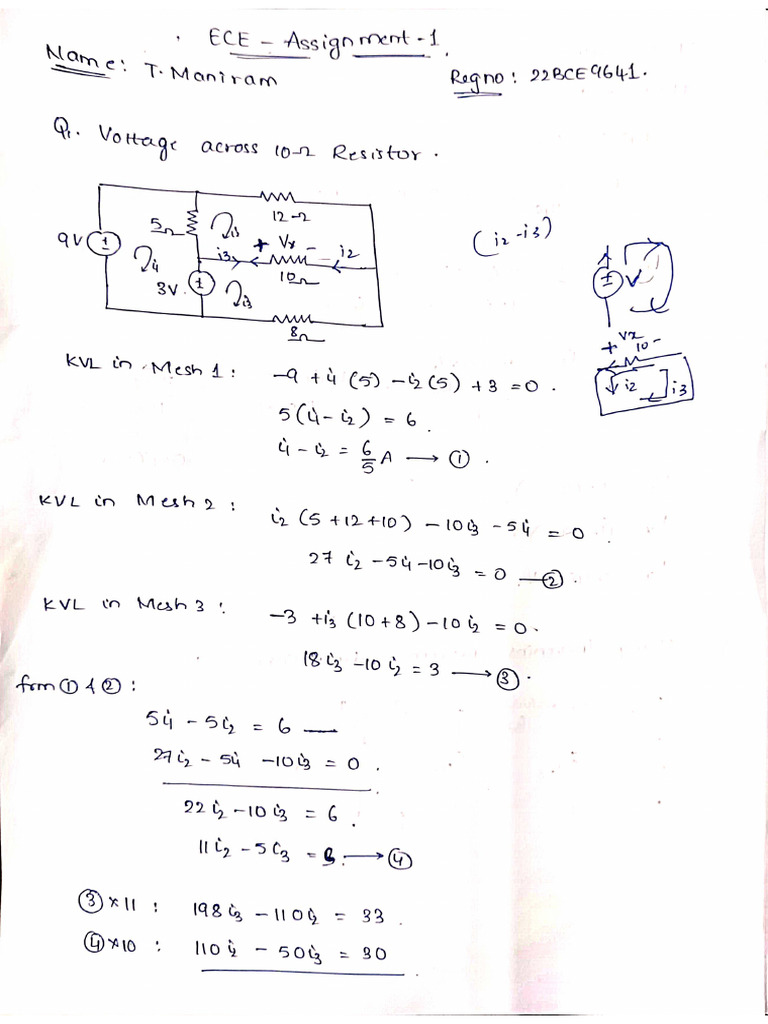 ECE - Assignment-1.
Name: T. Maniram
Regno: 22BCE9641.
Q1. Voltage across 10Ω Resistor.
12Ω
5Ω
i3
9V
+ Vx -
i2
(i2-i3)
i3
i1
10Ω
3V
i3
8Ω
V
Vx
+ 10 -
i2
i3
KVL in Mesh 1: -9 + i1 (5) - i2 (5) + 3 = 0.
5(i1 - i2) = 6.
i1 - i2 = 6/5 A → ①.
KVL in Mesh 2: i2 (5+12+10) - 10i3 - 5i1 = 0
27 i2 - 5i1 - 10i3 = 0 — ②.
KVL in Mesh 3: -3 + i3 (10+8) - 10 i2 = 0.
18 i3 - 10 i2 = 3 → ③.
from ① & ②:
5i1 - 5i2 = 6 —
27i2 - 5i1 - 10i3 = 0.
22 i2 - 10 i3 = 6.
11 i2 - 5 i3 = 3. → ④
③×11: 198 i3 - 110 i2 = 33.
④×10: 110 i2 - 50 i3 = 30